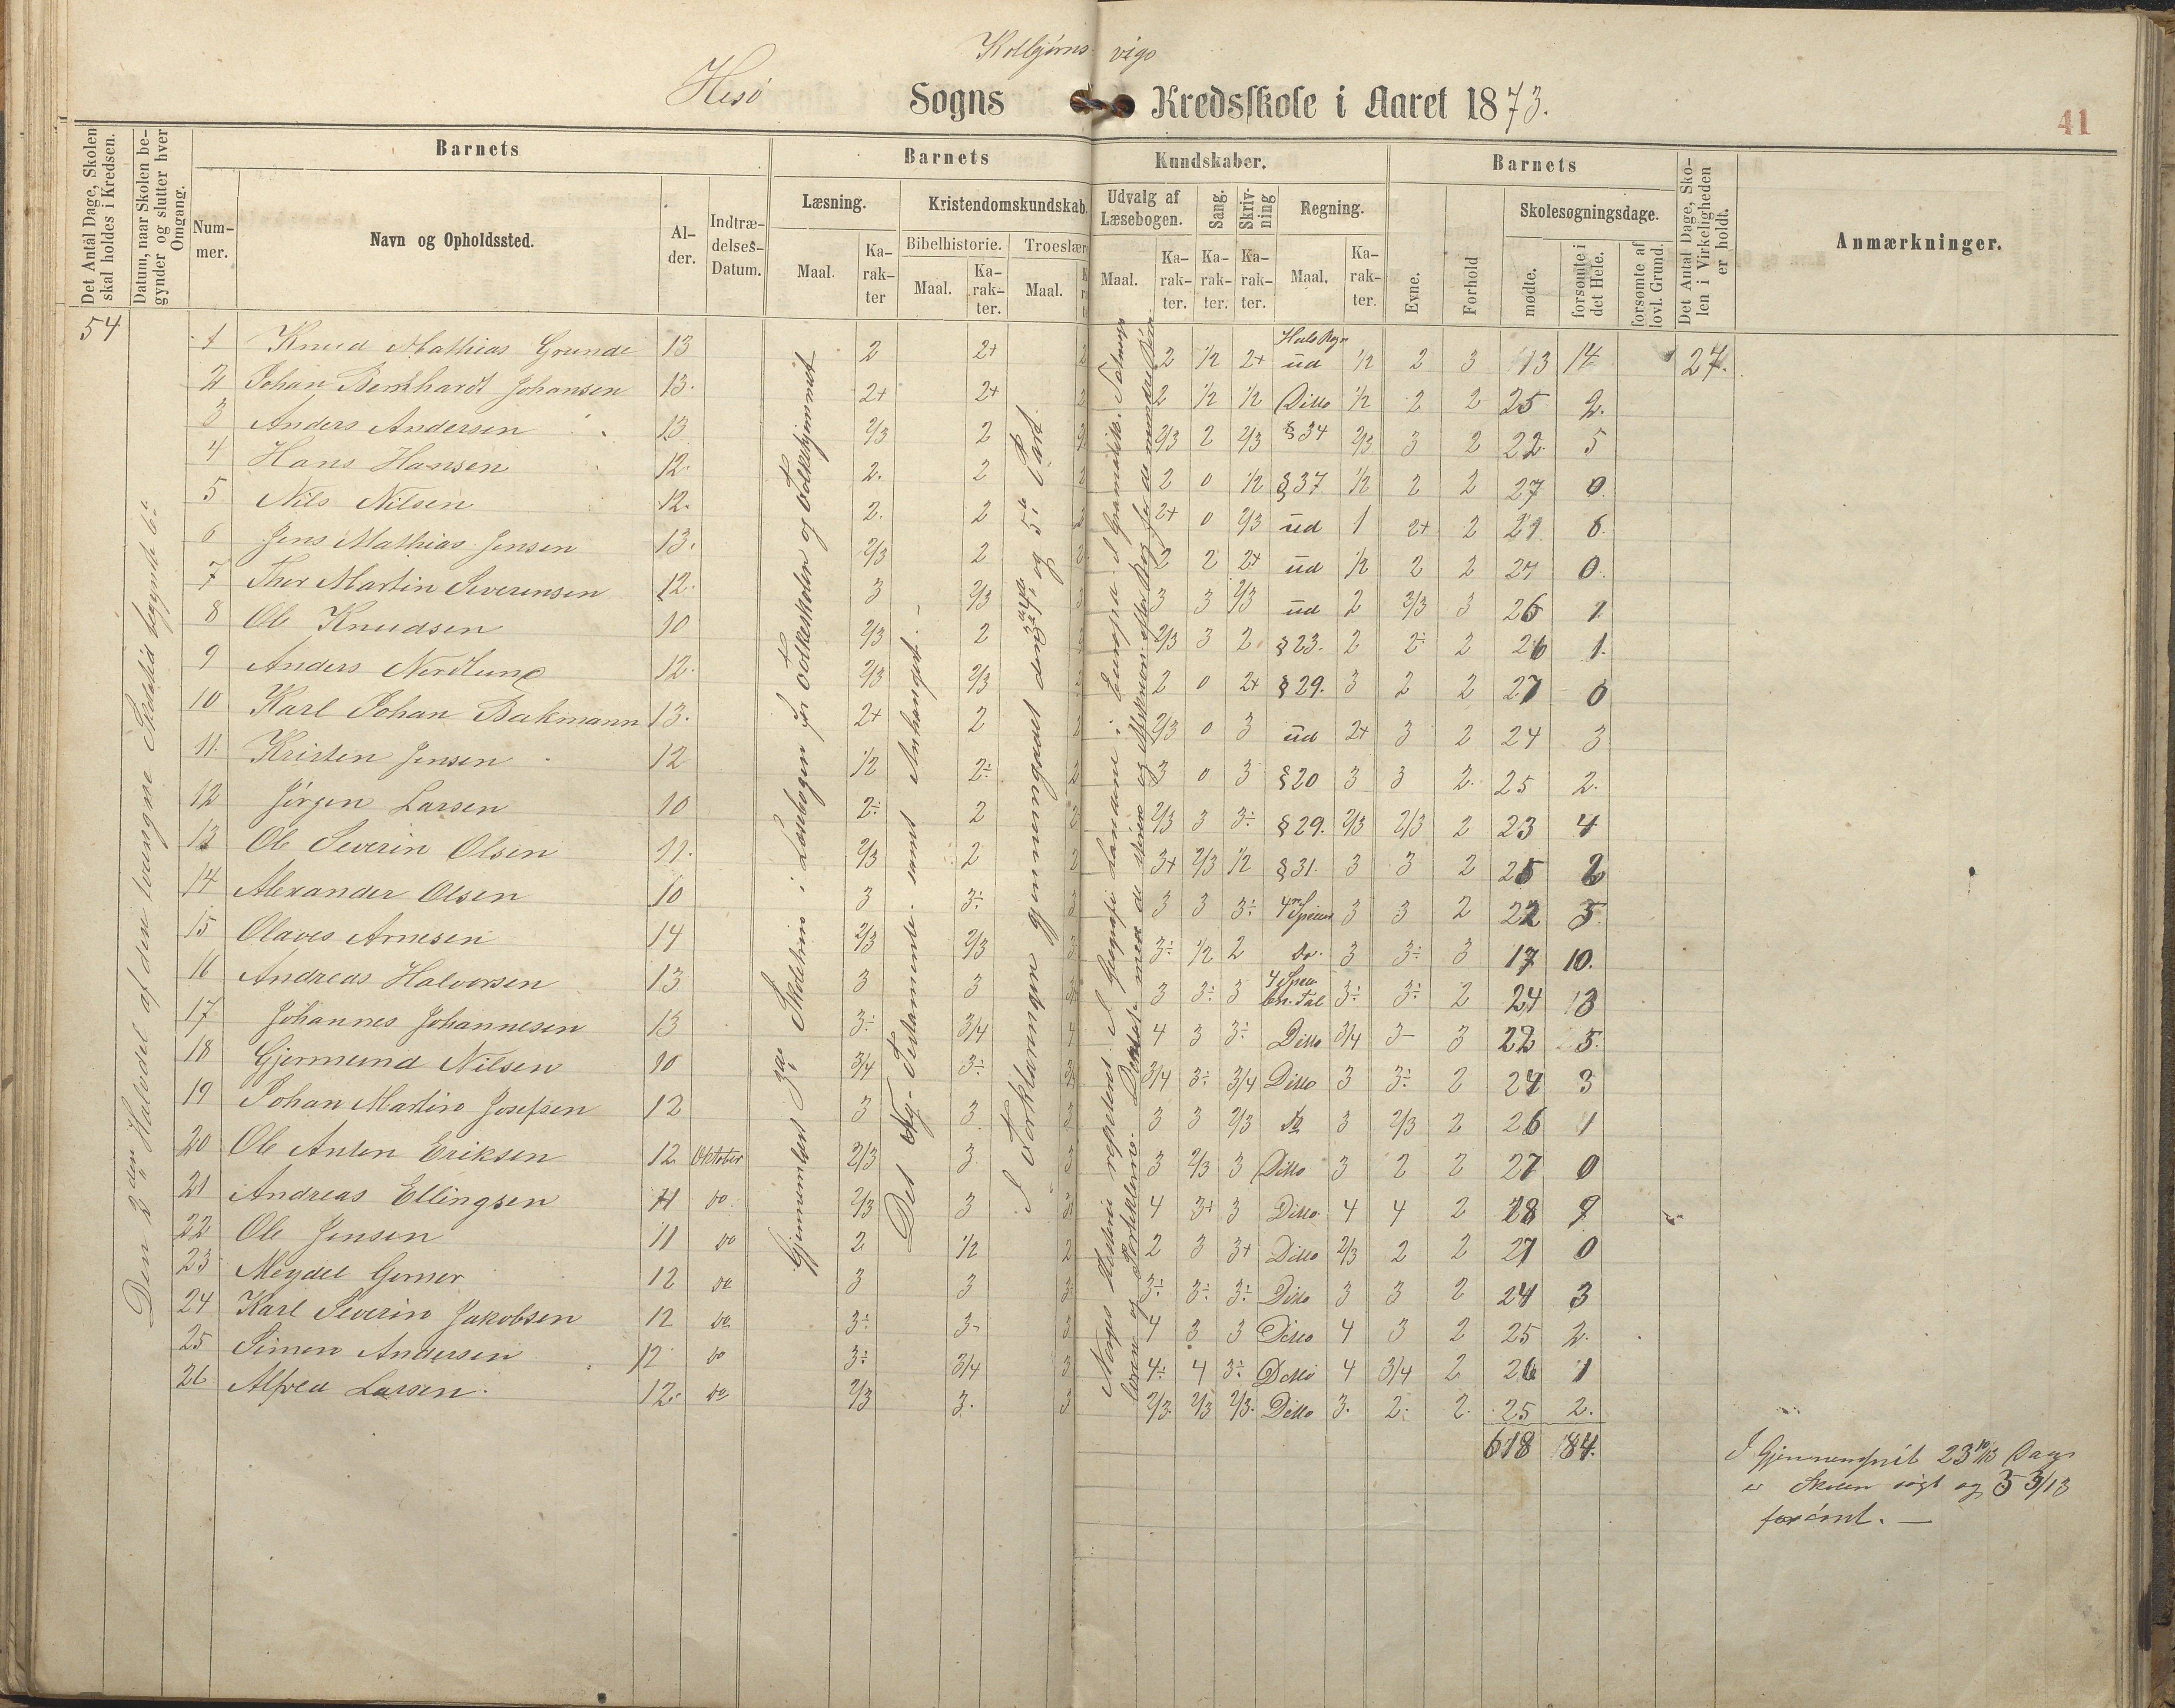 Kolbjørns vigs
Hisö Sogns Kredsskole i Aaret 1873.
41
Det Antal Dage, Skolen skal holdes i Kredsen.
Datum, naar Skolen begynder og slutter hver Omgang.
Barnets
Nummer.
Navn og Opholdssted.
Alder.
Indtrædelses-Datum.
Barnets Kundskaber.
Læsning.
Maal.
Karakter
Kristendomskundskab.
Bibelhistorie.
Maal.
Karakter.
Troeslær
Maal.
Udvalg af Læsebogen.
Maal.
Karakter.
Sang.
Karakter.
Skrivning
Karakter.
Regning.
Maal.
Karakter.
Barnets
Evne.
Forhold
Skolesøgningsdage.
mødte.
forsømte i det Hele.
forsømte af lovl. Grund.
Det Antal Dage, Skolen i Virkeligheden er holdt.
Anmærkninger.
54
Den 2den Halvdel af den tvungne Skoletid begyndte 6.
Gjennemlæst 3die Skoletrin i Læsebogen for Folkeskolen og Folkehjemmet
Det Ny-Testamente samt Anhanget.
I Forklaringen gjennemgaaet 4de og 5te Part.
1 Knud Mathias Grunde 13 2 2+ 2 2 1/2 2+ Hele Regn ud 1/2 2 3 13 14 27.
2 Johan Bernhardt Johansen 13. 2+ 2+ 2 2 1/2 1/2 Ditto 1/2 2 2 25 2.
3 Anders Andersen 13 2/3 2 2/3 2 2/3 § 34 2/3 3 2 22 5
4 Hans Hansen 12. 2. 2 2 2 0 1/2 § 37 1/2 2 2 27 0.
5 Nils Nilsen 12. 2. 2 2 2+ 0 2/3 ud 1 2+ 2 21 6.
6 Jens Mathias Jensen 13. 2/3 2 2 2 2 2+ ud 1/2 2 2 27 0.
7 Thor Martin Severensen 12. 3 2/3 3 3 3 2/3 ud 2 2/3 3 26 1
8 Ole Knudsen 10 2/3 2 2/3 3 2 § 23. 2 2÷ 2 26 1.
9 Anders Nordlund 12. 2/3 2/3 2 0 2+ § 29. 3 2 2 27 0
10 Karl Johan Bakmann 13. 2+ 2 2/3 0 3 ud 2+ 3 2 24 3
11. Kristen Jensen 12 1/2 2÷ 2 3 0 3 § 20 3 3 2. 25 2.
12 Jörgen Larsen 10 2÷ 2 2/3 3 3÷ § 29. 2/3 2/3 2 23 4
13 Ole Severin Olsen 11. 2/3 2 2 3+ 2/3 1/2 § 31. 3 3 2 25 2
14 Alexander Olsen 10 3 3÷ 3 3 3 3÷ 4 Species 3 3 2 22 5
15 Olaves Arnesen 14 2/3 2/3 3 3÷ 1/2 2 Do. 3 3÷ 3 17 10.
16 Andreas Halvorsen 13 3 3 3 3÷ 3 4 Spec. bn. Tal 3÷ 3÷ 2 24 3
17 Johannes Johannesen 13 3÷ 3/4 4 4 3 3÷ Ditto 3/4 3- 3 22 5.
18 Gjermund Nilsen 10 3/4 3÷ 3/4 3÷ 3/4 Ditto 3 3÷ 2 24 3
19 Johan Martin Josefsen 12 3 3 3 3 3 2/3 do 3 2/3 2 26 1
20 Ole Anton Eriksen 12 Oktober 2/3 3 3 3 2/3 3 Ditto 3 2 2 27 0
21 Andreas Ellingsen 11 do 2/3 3 3 4 3+ 3 Ditto 4 4 2 18 9
22 Ole Jensen 11 do 2 1/2 2 2 3 3+ Ditto 2/3 2 2 27 0
23 Meydel Gerner 12 do 3 3 3 3÷ 3÷ 3÷ Ditto 3 3 2 24 3
24 Karl Severin Jakobsen 12 do 3÷ 3- 3 4 3 3 Ditto 4 3 2 25 2.
25 Simon Andersen 12 do 3÷ 3/4 3 4÷ 4 3÷ Ditto 4 3/4 2 26 1
26 Alfred Larsen. 12. do 2/3 3. 3 2/3 2/3 2/3. Ditto 3. 2÷ 2 25 2.
618 84.
I Gjennemsnit 23 10/13 Dage
er Skolen søgt og 3 3/13
forsømt. —